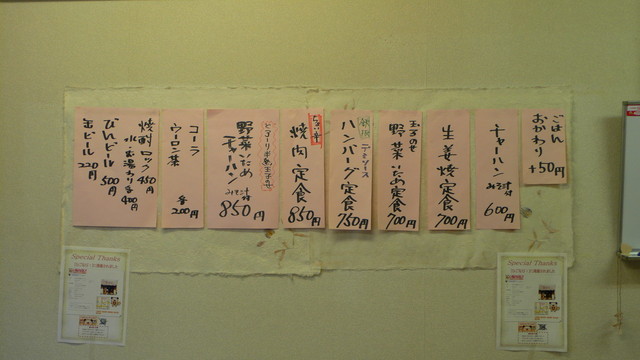 ごはん
おかわり
+50円
チャーハン
みそ汁付
600円
生姜焼定食
700円
玉子のせ
野菜いため定食
700円
鉄板
デミソース
ハンバーグ定食
750円
ちょい辛
焼肉定食
850円
野菜いため
チャーハン
みそ汁付
850円
コーラ
ウーロン茶
各
200円
焼酎ロック 450
水・お湯わり 各400円
びんビール 500円
缶ビール 220円
Special Thanks
Special Thanks